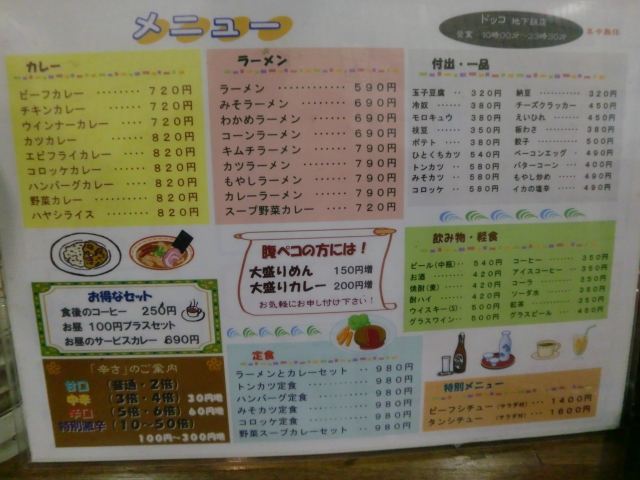 メニュー
ドッコ 地下鉄店
営業:10時00分〜23時30分
年中無休
カレー
ビーフカレー ‥‥‥‥ 720円
チキンカレー ‥‥‥‥ 720円
ウインナーカレー ‥‥ 720円
カツカレー ‥‥‥‥‥ 820円
エビフライカレー ‥‥ 820円
コロッケカレー ‥‥‥ 820円
ハンバーグカレー ‥‥ 820円
野菜カレー ‥‥‥‥‥ 820円
ハヤシライス ‥‥‥‥ 820円
ラーメン
ラーメン ‥‥‥‥‥‥ 590円
みそラーメン ‥‥‥‥ 690円
わかめラーメン ‥‥‥ 690円
コーンラーメン ‥‥‥ 690円
キムチラーメン ‥‥‥ 770円
カツラーメン ‥‥‥‥ 770円
もやしラーメン ‥‥‥ 770円
カレーラーメン ‥‥‥ 770円
スープ野菜カレー ‥‥ 720円
付出・一品
玉子豆腐 ‥ 320円
冷奴 ‥‥ 380円
モロキュウ ‥ 380円
枝豆 ‥‥ 350円
ポテト ‥ 380円
ひとくちカツ 540円
トンカツ ‥ 580円
みそカツ ‥ 580円
コロッケ ‥ 580円
納豆 ‥‥‥‥ 320円
チーズクラッカー 450円
えいひれ ‥‥ 450円
板わさ ‥‥‥ 380円
餃子 ‥‥‥‥ 500円
ベーコンエッグ ‥ 490円
バターコーン ‥ 400円
もやし炒め ‥‥ 490円
イカの塩辛 ‥‥ 490円
腹ペコの方には!
大盛りめん 150円増
大盛りカレー 200円増
お気軽にお申し付け下さい!
飲み物・軽食
ビール(中瓶)‥ 540円
お酒 ‥‥‥‥ 420円
焼酎(麦)‥‥ 420円
酎ハイ ‥‥‥ 420円
ウイスキー(S)‥ 500円
グラスワイン ‥ 500円
コーヒー ‥‥‥ 350円
アイスコーヒー ‥ 350円
コーラ ‥‥‥‥ 350円
ソーダ水 ‥‥‥ 350円
紅茶 ‥‥‥‥‥ 350円
グラスビール ‥ 450円
お得なセット
食後のコーヒー 250円
お昼 100円プラスセット
お昼のサービスカレー 690円
「辛さ」のご案内
甘口 (普通・2倍)
中辛 (3倍・4倍) 30円増
辛口 (5倍・6倍) 60円増
特別激辛 (10〜50倍)
100円〜300円増
定食
ラーメンとカレーセット ‥ 980円
トンカツ定食 ‥‥‥‥‥ 980円
ハンバーグ定食 ‥‥‥‥ 980円
みそカツ定食 ‥‥‥‥‥ 980円
コロッケ定食 ‥‥‥‥‥ 980円
野菜スープカレーセット ‥ 980円
特別メニュー
ビーフシチュー(サラダ付)‥‥ 1400円
タンシチュー(サラダ付)‥‥ 1600円